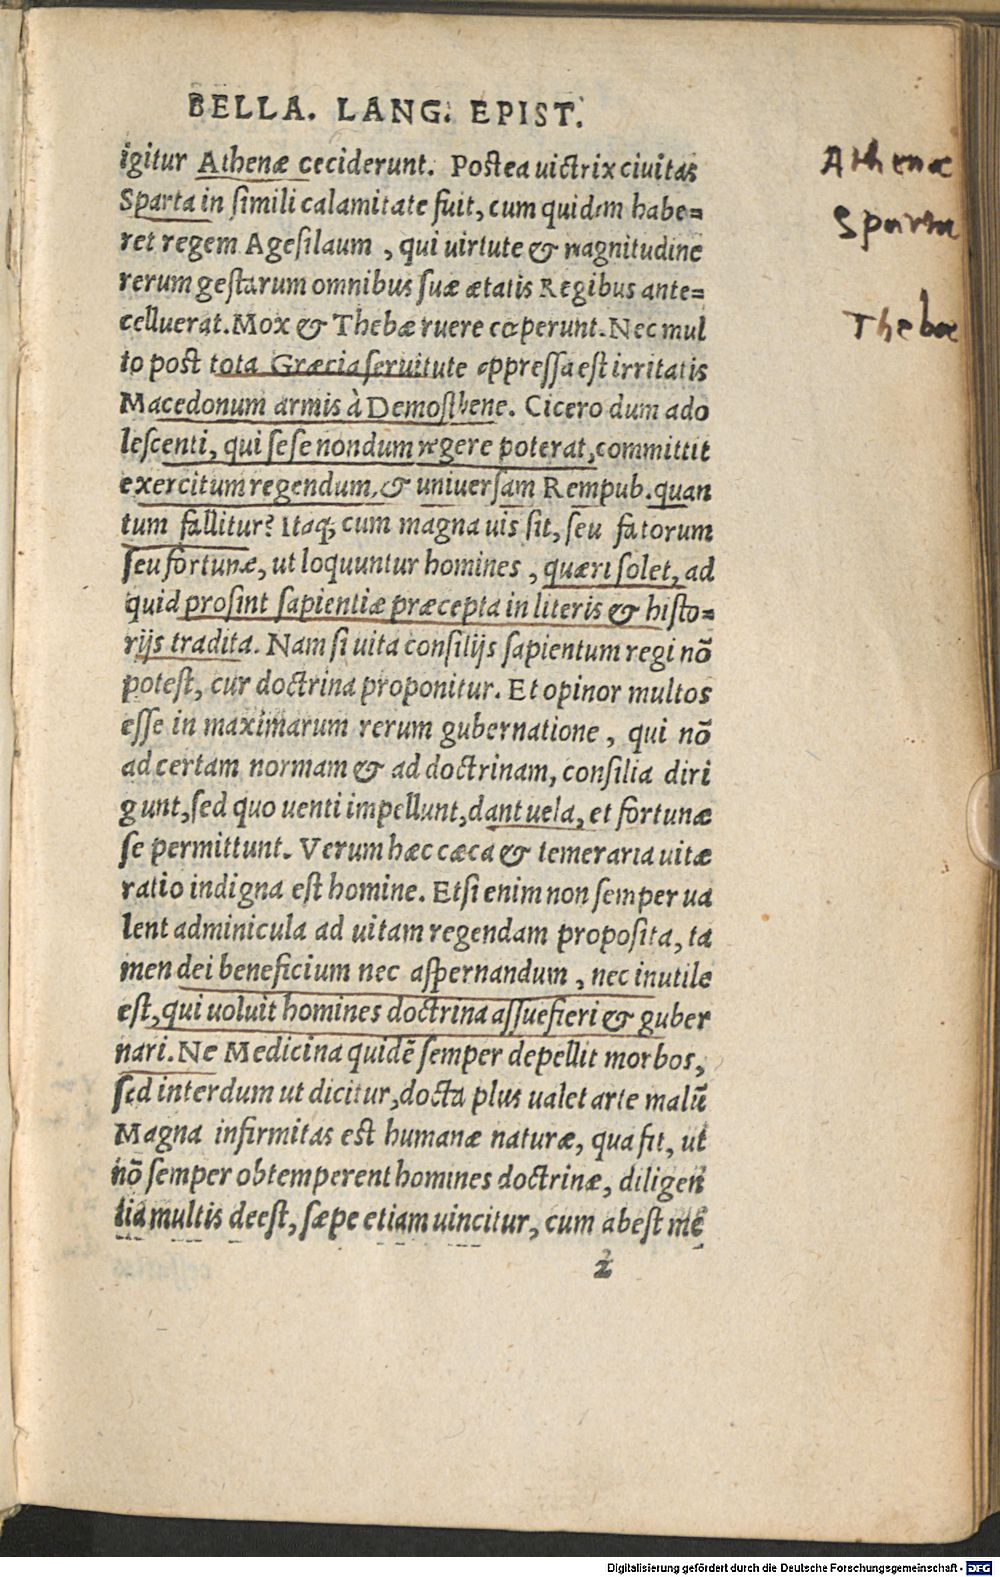 BELLA. LANG. EPIST.
igitur Athenæ ceciderunt. Postea uictrix ciuitas
Sparta in ſimili calamitate fuit, cum quidem habe=
ret regem Ageſilaum , qui uirtute & magnitudine
rerum geſtarum omnibus ſuæ ætatis Regibus ante=
celluerat. Mox & Thebæ ruere cœperunt. Nec mul
to post tota Græcia ſeruitute oppreſſa eſt irritatis
Macedonum armis à Demoſthene. Cicero dum ado
leſcenti, qui ſeſe nondum regere poterat, committit
exercitum regendum, & uniuerſam Rempub. quan
tum fallitur? Itaq; cum magna uis ſit, ſeu fatorum
ſeu fortunæ, ut loquuntur homines , quæri ſolet, ad
quid proſint ſapientiæ præcepta in literis & hiſto=
rijs tradita. Nam ſi uita conſilijs ſapientum regi nō
poteſt, cur doctrina proponitur. Et opinor multos
eſſe in maximarum rerum gubernatione , qui nō
ad certam normam & ad doctrinam, conſilia diri
gunt, ſed quo uenti impellunt, dant uela, et fortunæ
ſe permittunt. Verum hæc cæca & temeraria uitæ
ratio indigna eſt homine. Etſi enim non ſemper ua
lent adminicula ad uitam regendam propoſita, ta
men dei beneficium nec aſpernandum , nec inutile
eſt, qui uoluit homines doctrina aſſuefieri & guber
nari. Ne Medicina quidē ſemper depellit morbos,
ſed interdum ut dicitur, docta plus ualet arte malū
Magna infirmitas est humanæ naturæ, qua fit, ut
nō ſemper obtemperent homines doctrinæ, diligen
tia multis deeſt, ſæpe etiam uincitur, cum abeſt me
2
Athenæ
Sparta
Thebæ
Digitalisierung gefördert durch die Deutsche Forschungsgemeinschaft - DFG